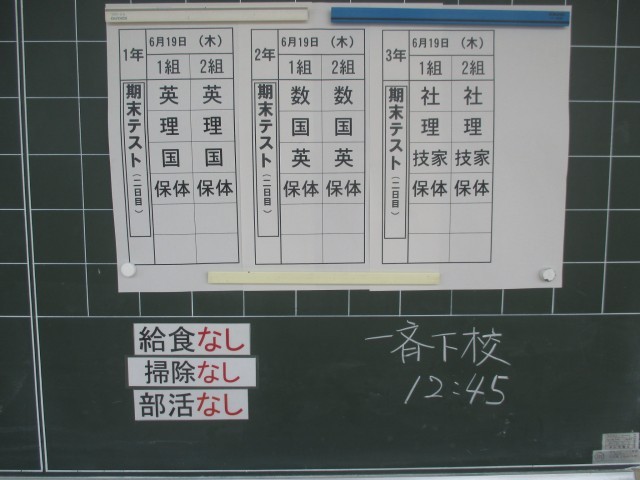 1年 6月19日 （木）
1組 2組
期末テスト（二日目）
英 英
理 理
国 国
保体 保体
2年 6月19日 （木）
1組 2組
期末テスト（二日目）
数 数
国 国
英 英
保体 保体
3年 6月19日 （木）
1組 2組
期末テスト（二日目）
社 社
理 理
技家 技家
保体 保体
給食なし
掃除なし
部活なし
一斉下校
12:45